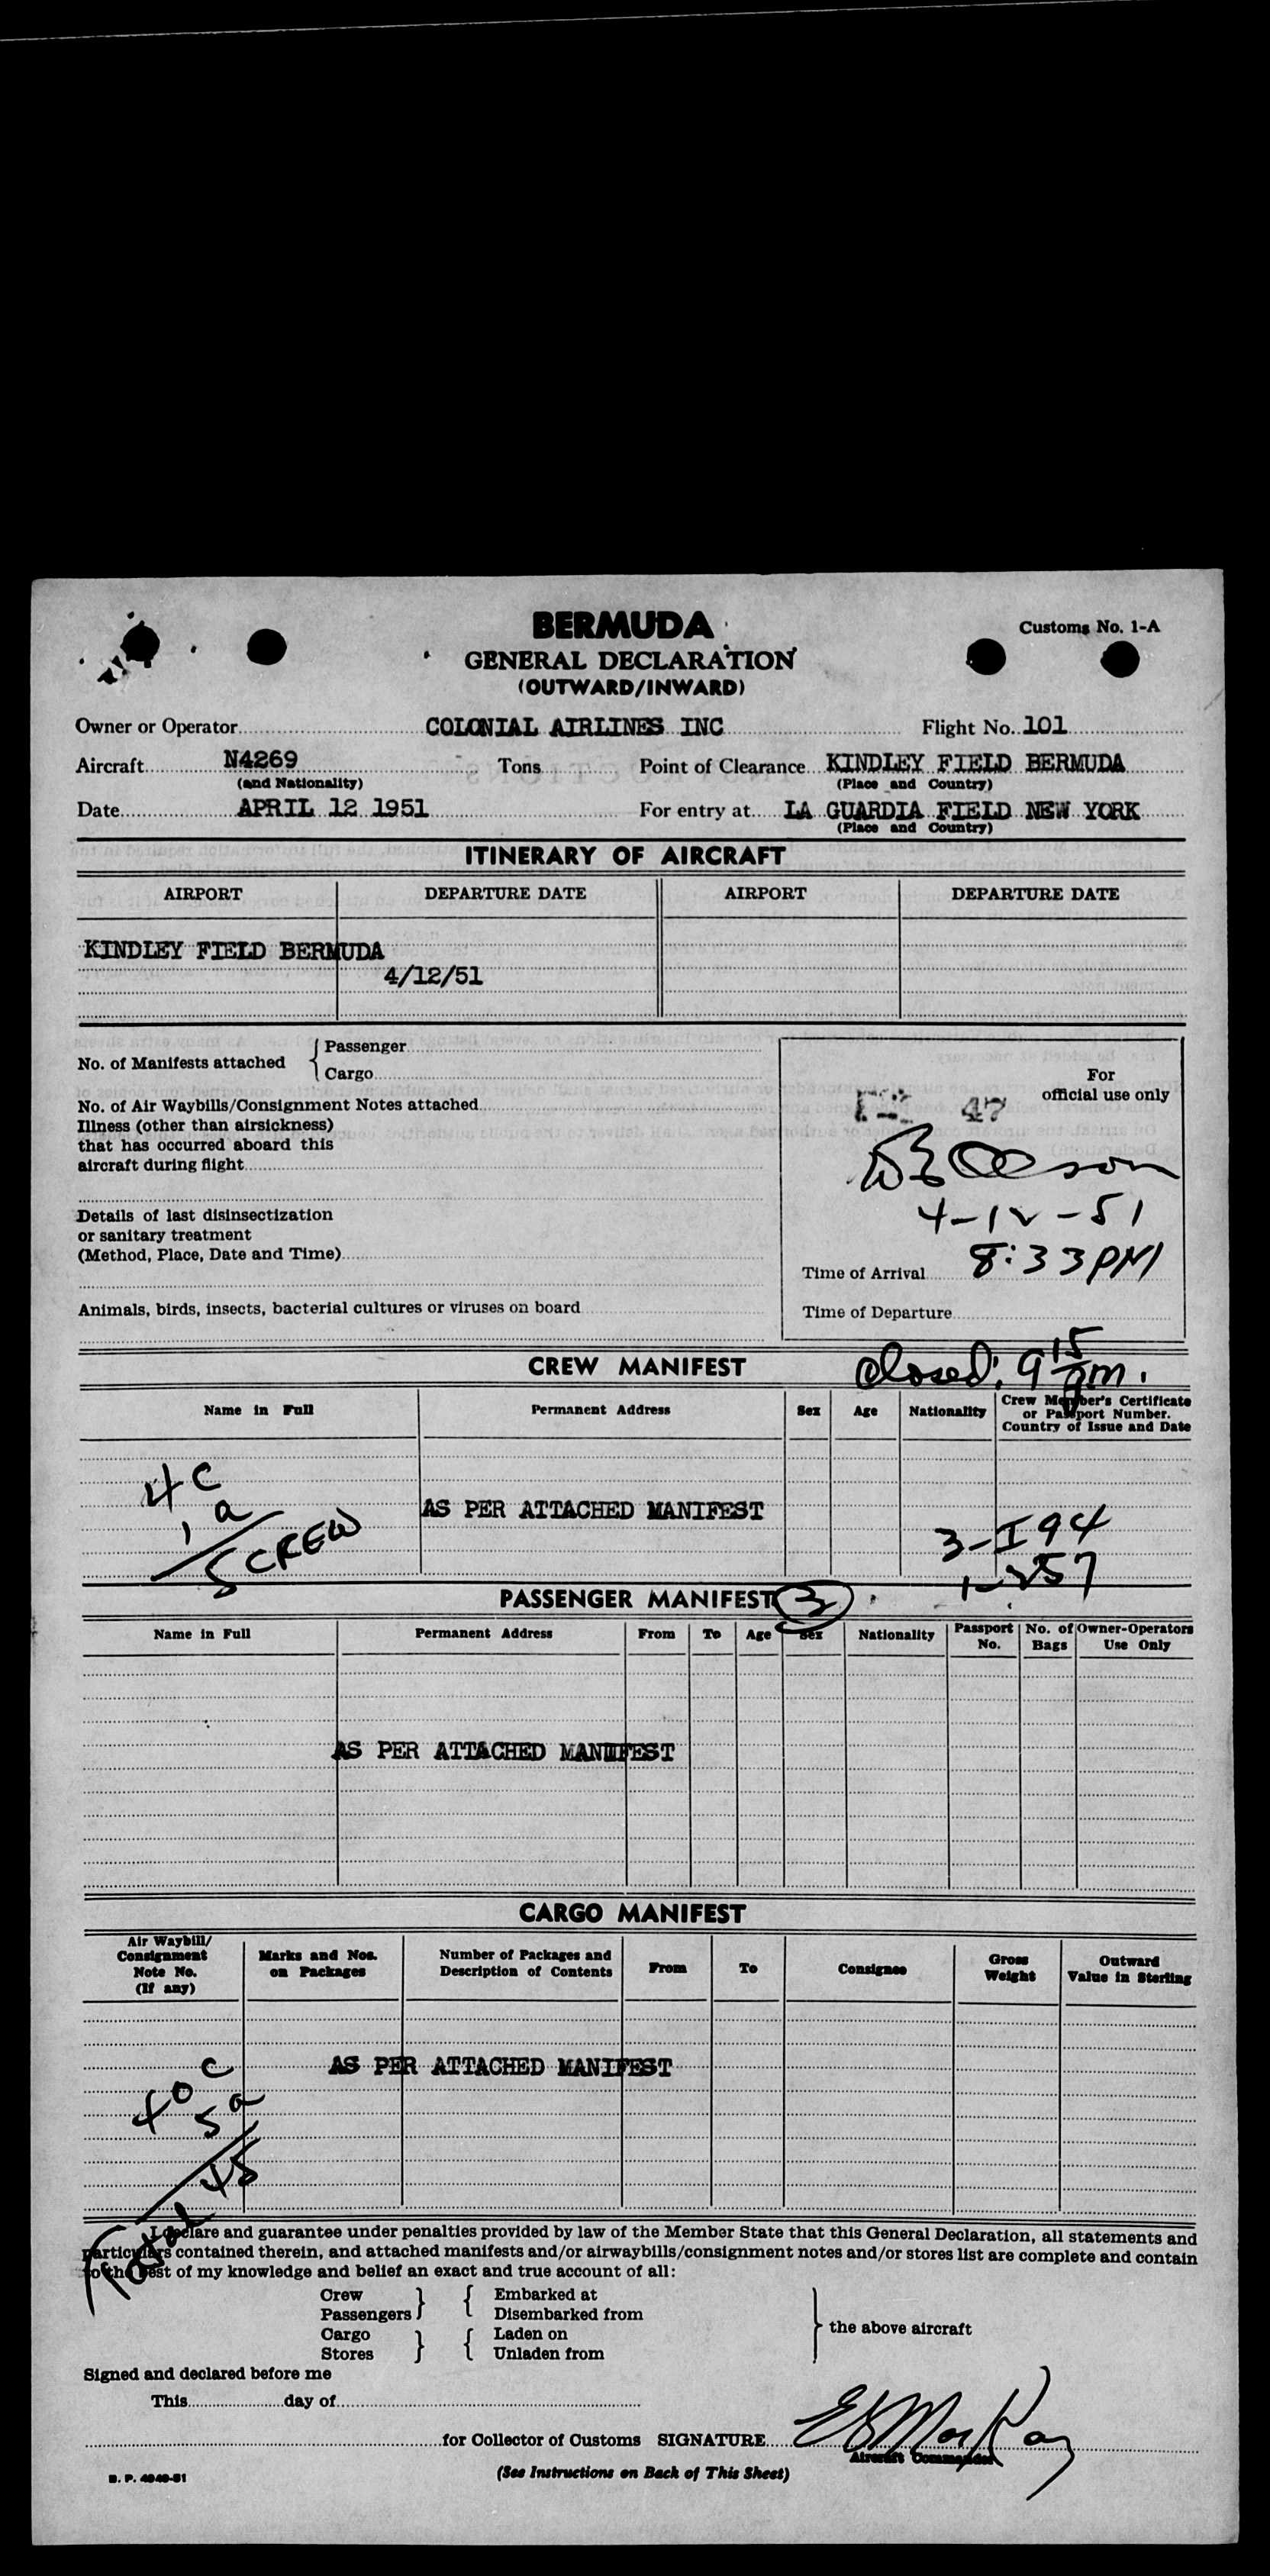 BERMUDA
Customs No. 1-A
GENERAL DECLARATION
(OUTWARD/INWARD)
Owner or Operator COLONIAL AIRLINES INC Flight No. 101
Aircraft N4269 Tons Point of Clearance KINDLEY FIELD BERMUDA
(and Nationality) (Place and Country)
Date APRIL 12 1951 For entry at LA GUARDIA FIELD NEW YORK
(Place and Country)
ITINERARY OF AIRCRAFT
AIRPORT DEPARTURE DATE AIRPORT DEPARTURE DATE
KINDLEY FIELD BERMUDA
4/12/51
No. of Manifests attached { Passenger
Cargo
No. of Air Waybills/Consignment Notes attached
Illness (other than airsickness)
that has occurred aboard this
aircraft during flight
Details of last disinsectization
or sanitary treatment
(Method, Place, Date and Time)
Animals, birds, insects, bacterial cultures or viruses on board
For
official use only
47
Olson
4-12-51
8:33 PM
Time of Arrival
Time of Departure
closed: 9 15 pm.
CREW MANIFEST
Name in Full Permanent Address Sex Age Nationality Crew Member's Certificate
or Passport Number.
Country of Issue and Date
4 C
1 a
5 CREW
AS PER ATTACHED MANIFEST
3-I94
1-257
PASSENGER MANIFEST 3
Name in Full Permanent Address From To Age Sex Nationality Passport No. No. of Bags Owner-Operators Use Only
AS PER ATTACHED MANIFEST
CARGO MANIFEST
Air Waybill/
Consignment
Note No.
(If any)
Marks and Nos.
on Packages
Number of Packages and
Description of Contents
From To Consignee
Gross
Weight
Outward
Value in Sterling
AS PER ATTACHED MANIFEST
40 C
5 a
Total 45
I declare and guarantee under penalties provided by law of the Member State that this General Declaration, all statements and
particulars contained therein, and attached manifests and/or airwaybills/consignment notes and/or stores list are complete and contain
to the best of my knowledge and belief an exact and true account of all:
Crew } { Embarked at
Passengers } { Disembarked from
Cargo } { Laden on
Stores } { Unladen from
} the above aircraft
Signed and declared before me
This day of
for Collector of Customs SIGNATURE E S MacKay
Aircraft Commander
B. P. 4040-51
(See Instructions on Back of This Sheet)